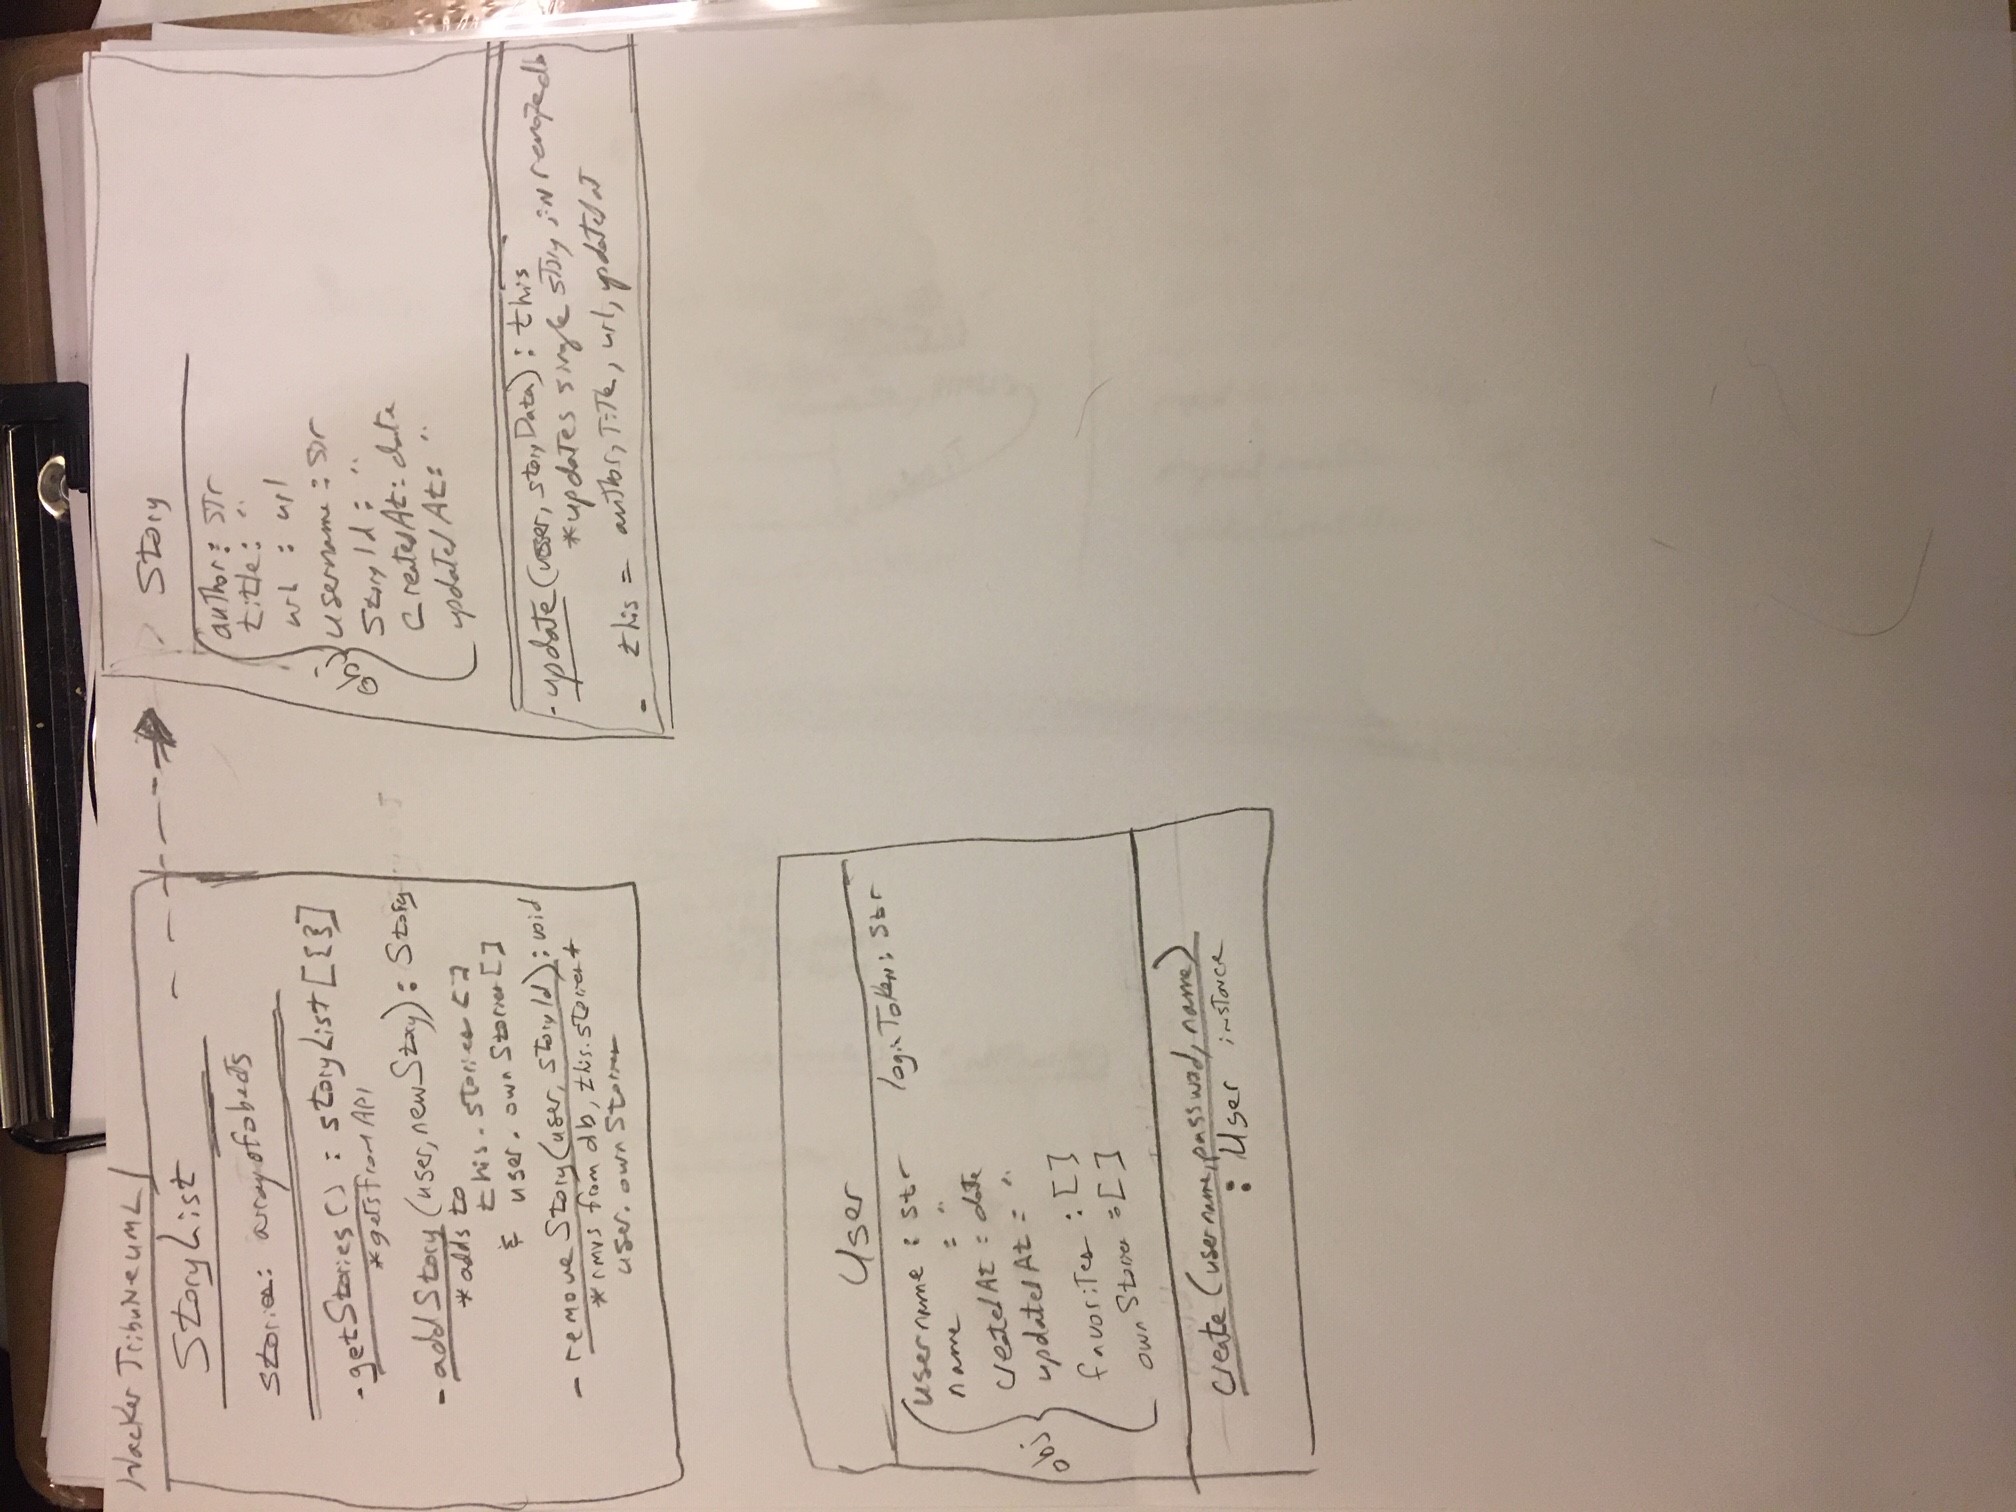 Hacker Tribune UML
StoryList
stories: array of obects
- getStories() : storyList [{}]
* gets from API
- addStory (user, newStory) : Story
* adds to
this.stories []
& user.ownStories []
- remove Story(user, storyId) : void
* rmvs from db, this.stories +
user.ownStories
Story
obj
author : str
title : "
url : url
username : str
storyId : "
createdAt : date
updatedAt : "
- update (user, storyData) : this
* updates single story in remote db
- this = author, title, url, updatedAt
User
obj
username : str loginToken : str
name = "
createdAt = date
updatedAt = "
favorites : []
ownStories = []
create (username, password, name)
: User instance